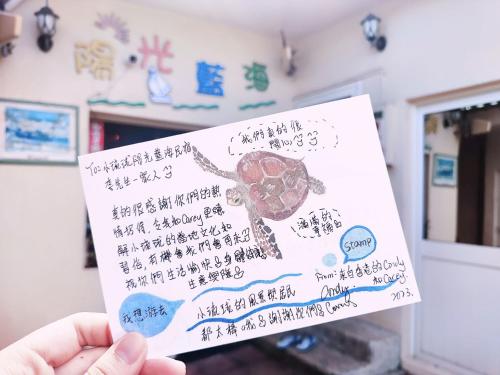 陽光藍海
我們真的很
開心
To: 小琉球陽光藍海民宿
李先生一家人
真的很感謝你們的熱
情招待，令我和Carey更瞭
解小琉球的當地文化和
習俗，有機會我們會再來
祝你們生活愉快，身體健康
生意興隆
滿滿的
幸福
stamp
From: 來自香港的Cindy
和Carey
2023.
小琉球的風景與居民
都太棒啦 謝謝你們
我想游去